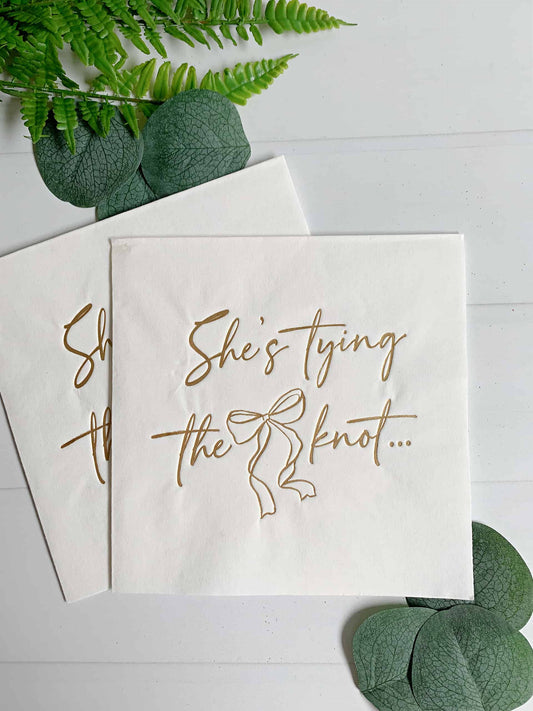 She's tying
the knot...
Sh
th